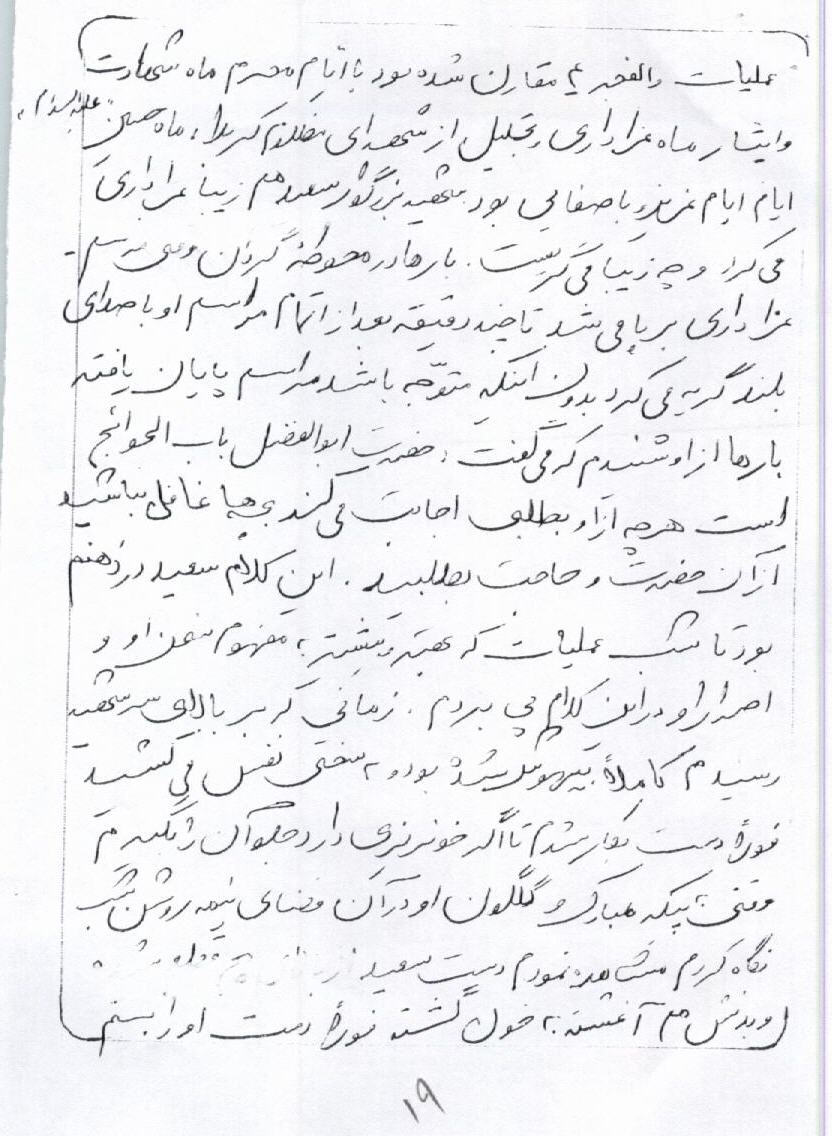 عملیات والفجر ۴ مقارن شده بود با ایّام محرم ماه شهادت
و ایثار ماه عزاداری و تجلیل از شهدای مظلوم کربلا، ماه حسین "علیه‌السلام"
ایام ایام عزیز و باصفایی بود شهید بزرگوار سعید هم زیبا عزاداری
می‌کرد و چه زیبا می‌گریست. بارها در محوطهٔ گردان وقتی مراسم
عزاداری برپا می‌شد تا چند دقیقه بعد از اتمام مراسم او با صدای
بلند گریه می‌کرد بدون اینکه متوّجه باشد مراسم پایان یافته
بارها از او شنیدم که می‌گفت: حضرت ابوالفضل باب الحوائج
است هرچه از او بطلبی اجابت می‌کند بچه‌ها غافل نباشید
از آن حضرت و حاجت بطلبید. این کلام سعید در ذهنم
بود تا شب عملیات که بهتر و بیشتر به مفهوم سخن او و
اصرار او در این کلام پی بردم. زمانی که بر بالای سر شهید
رسیدم کاملاً بیهوش شده بود و به سختی نفس می‌کشید
فوراً دست بکار شدم تا اگر خونریزی دارد جلو آن را بگیرم
وقتی به پیکر مبارک و گلگون او در آن فضای نیمه روشن شب
نگاه کردم مشاهده نمودم دست سعید از
و بدنش هم آغشته به خون گشته فوراً دست او را بستم
۱۹